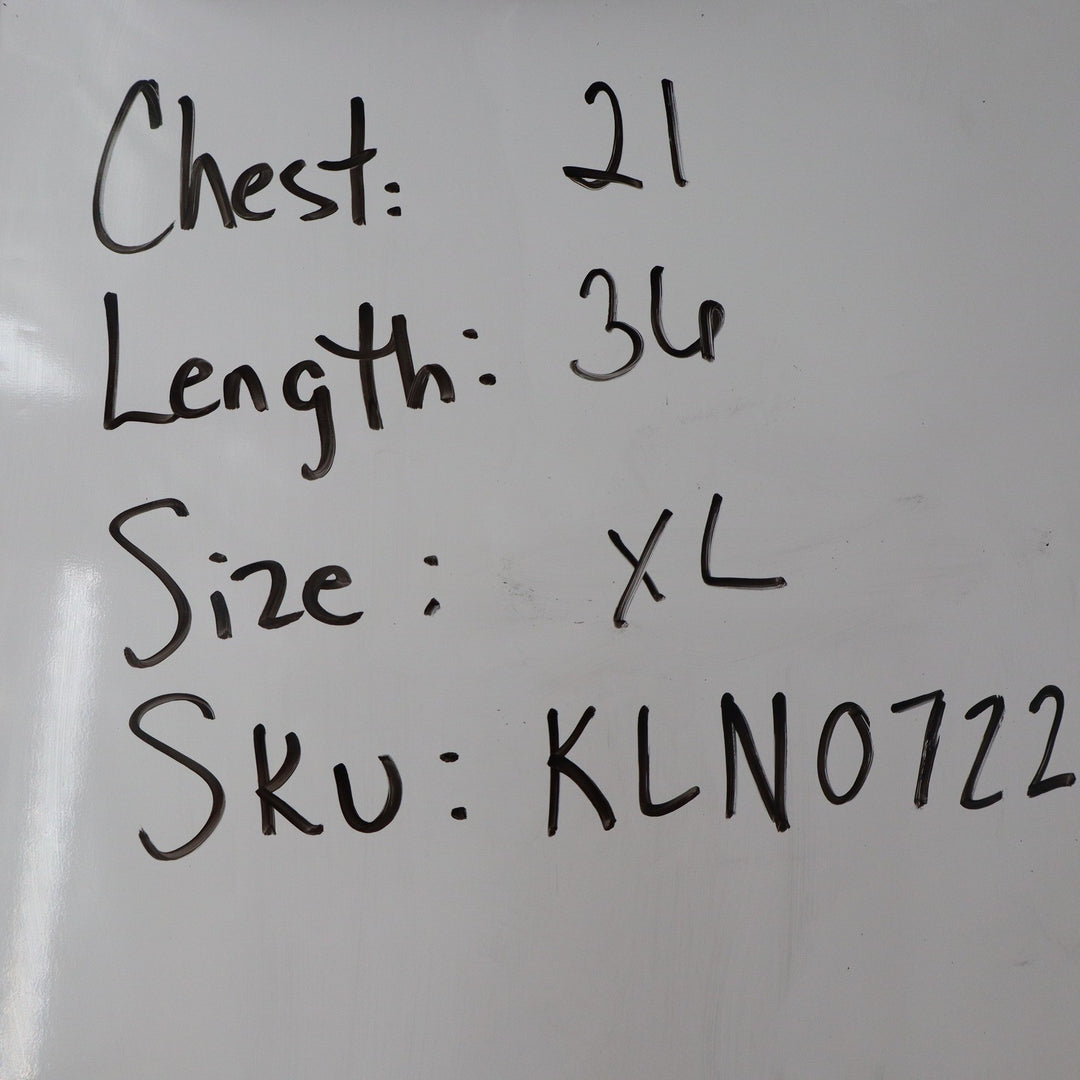 Chest: 21
Length: 36
Size: XL
SKU: KLN0722